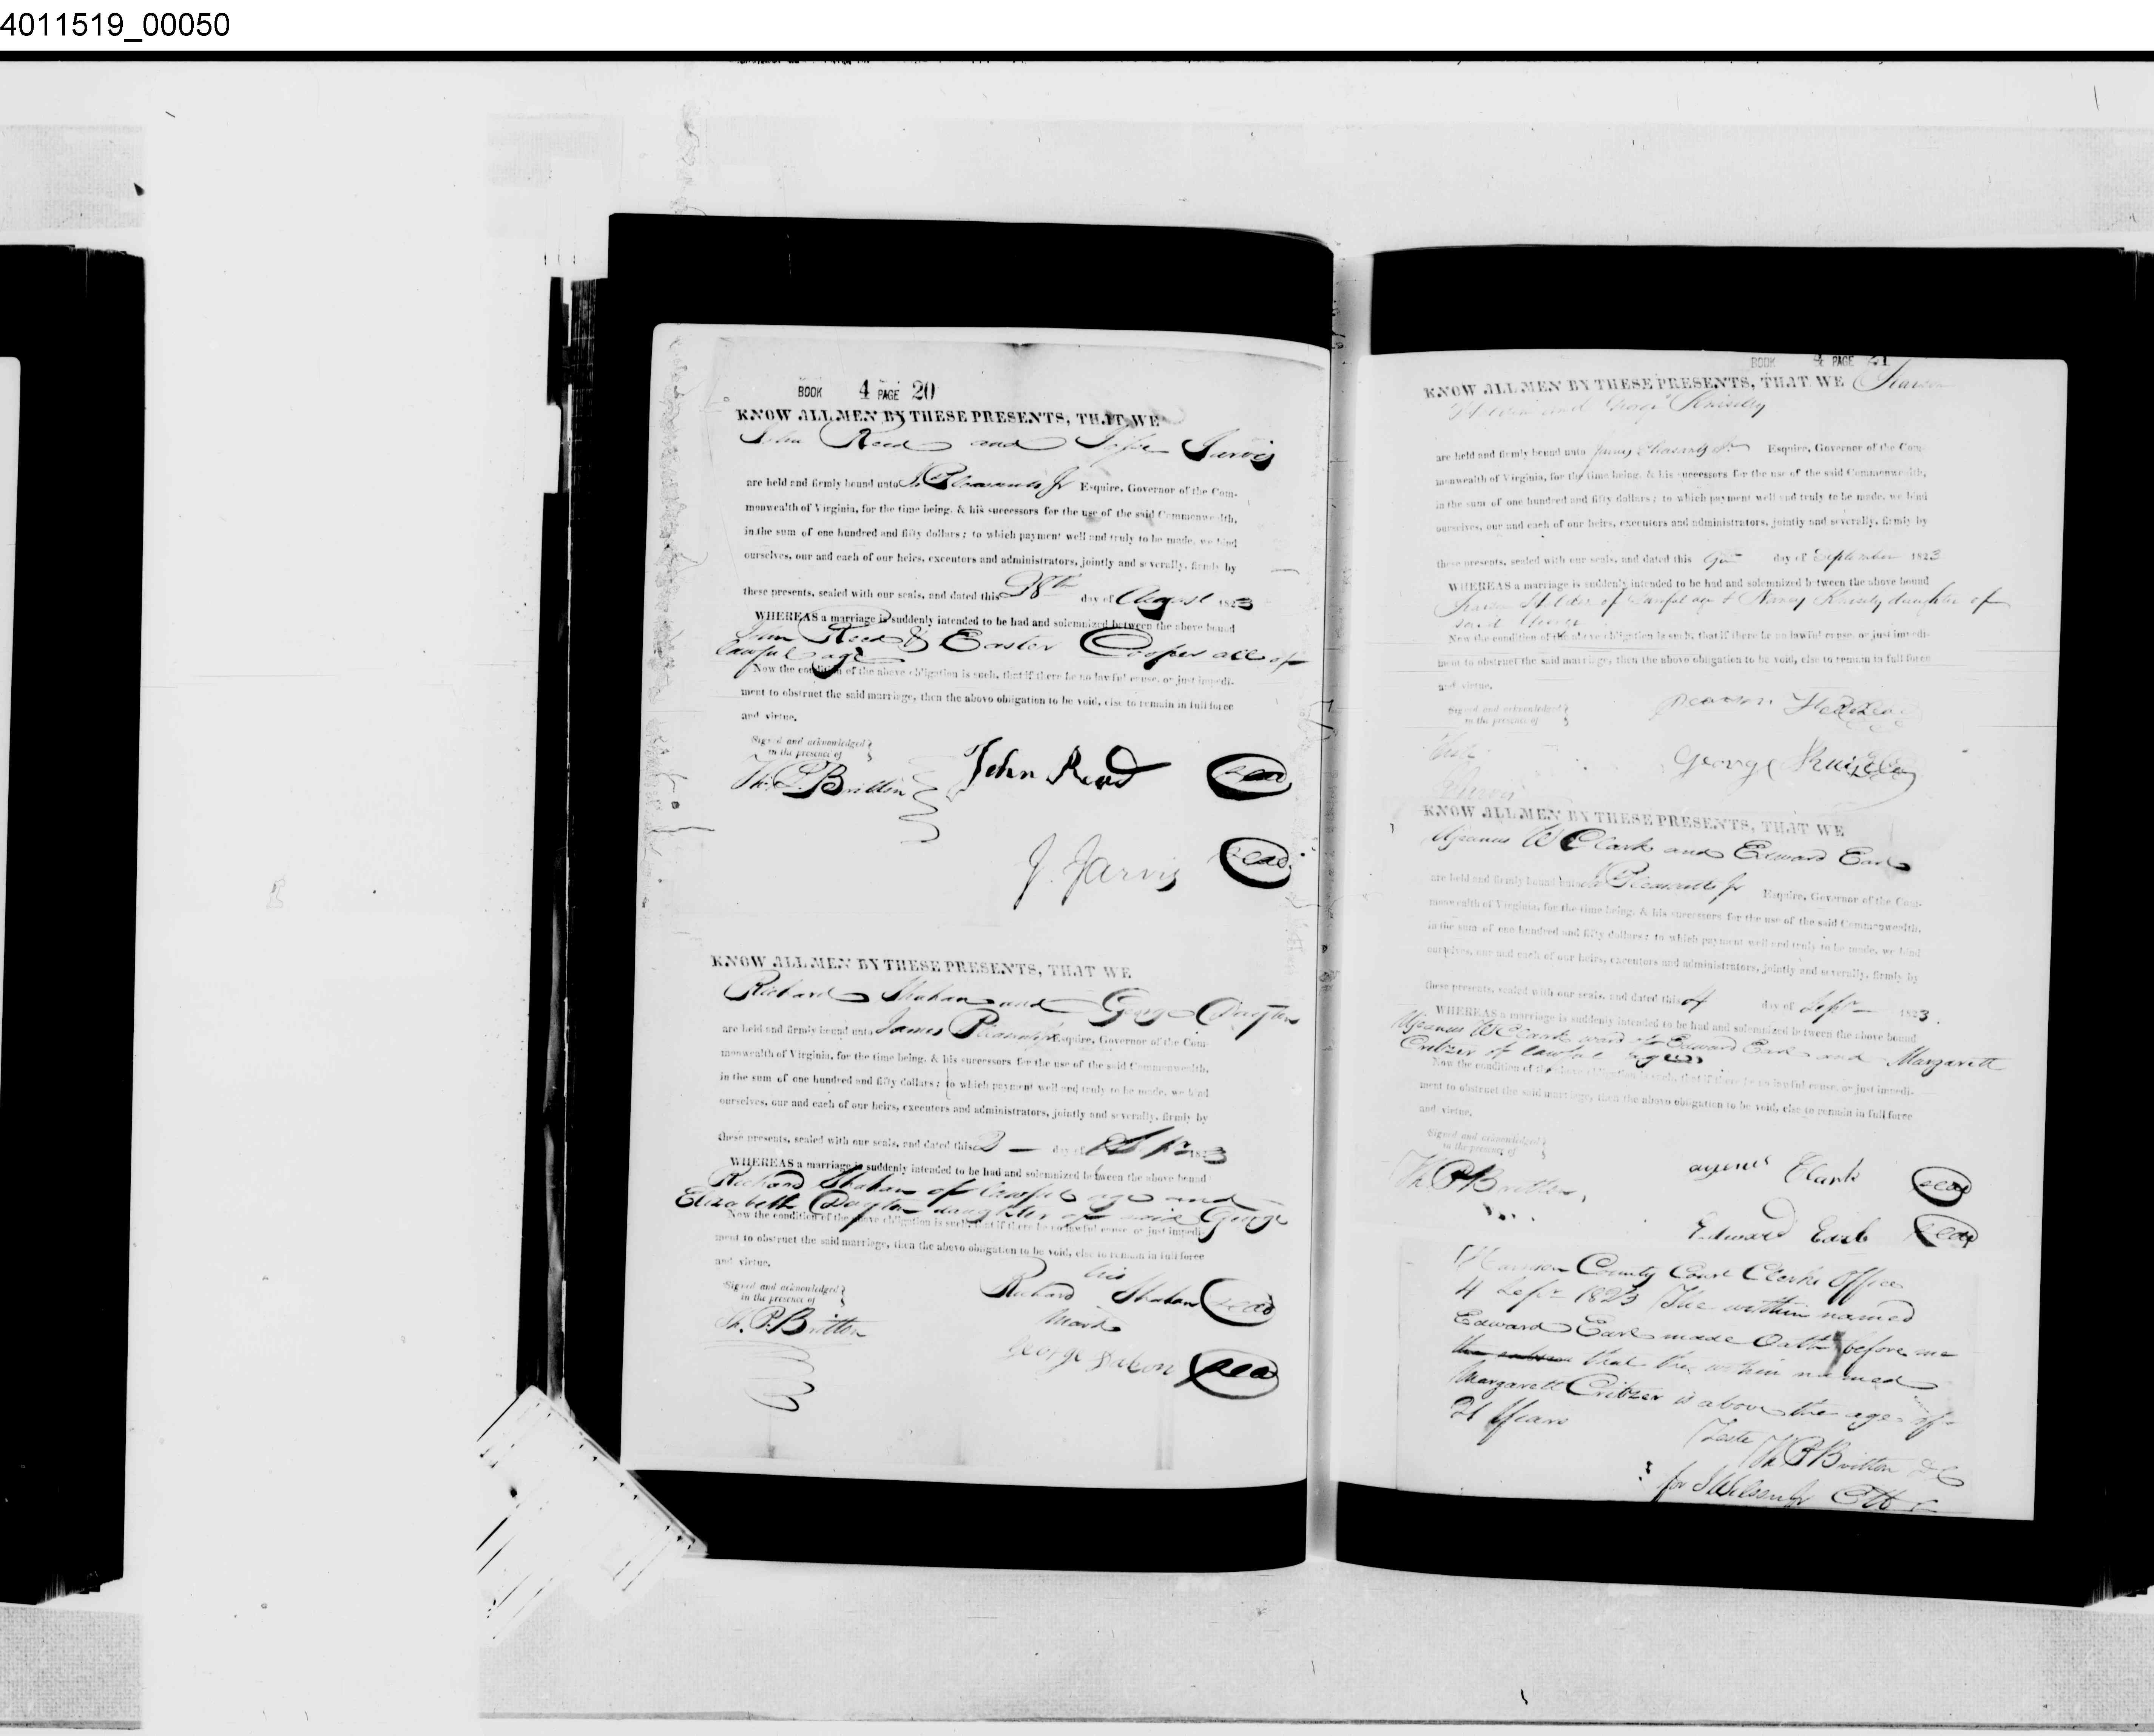 4011519_00050
BOOK 4 PAGE 20
KNOW ALL MEN BY THESE PRESENTS, THAT WE
John Reed and Jarvis
are held and firmly bound unto J. Pleasants Jr Esquire, Governor of the Com-
monwealth of Virginia, for the time being, & his successors for the use of the said Commonwealth,
in the sum of one hundred and fifty dollars; to which payment well and truly to be made, we bind
ourselves, our and each of our heirs, executors and administrators, jointly and severally, firmly by
these presents, sealed with our seals, and dated this 28th day of August 1823
WHEREAS a marriage is suddenly intended to be had and solemnized between the above bound
John Reed & Easter Cooper all of
lawful age
Now the condition of the above obligation is such, that if there be no lawful cause, or just impedi-
ment to obstruct the said marriage, then the above obligation to be void, else to remain in full force
and virtue.
Signed and acknowledged
in the presence of
Th. P. Britton John Read seal
J. Jarvis seal
KNOW ALL MEN BY THESE PRESENTS, THAT WE
Richard Shahan and George Dayton
are held and firmly bound unto James Pleasants Jr Esquire, Governor of the Com-
monwealth of Virginia, for the time being, & his successors for the use of the said Commonwealth,
in the sum of one hundred and fifty dollars; to which payment well and truly to be made, we bind
ourselves, our and each of our heirs, executors and administrators, jointly and severally, firmly by
these presents, sealed with our seals, and dated this 2 day of Sepr 1823
WHEREAS a marriage is suddenly intended to be had and solemnized between the above bound
Richard Shahan of lawful age and
Elizabeth Dayton daughter of said George
Now the condition of the above obligation is such, that if there be no lawful cause, or just impedi-
ment to obstruct the said marriage, then the above obligation to be void, else to remain in full force
and virtue.
Signed and acknowledged
in the presence of
his
Richard Shahan seal
mark
Th. P. Britton
George seal
BOOK 4 PAGE 21
KNOW ALL MEN BY THESE PRESENTS, THAT WE
and George
are held and firmly bound unto James Pleasants Jr Esquire, Governor of the Com-
monwealth of Virginia, for the time being, & his successors for the use of the said Commonwealth,
in the sum of one hundred and fifty dollars; to which payment well and truly to be made, we bind
ourselves, our and each of our heirs, executors and administrators, jointly and severally, firmly by
these presents, sealed with our seals, and dated this 9th day of September 1823
WHEREAS a marriage is suddenly intended to be had and solemnized between the above bound
of lawful age & Nancy daughter of
said George
Now the condition of the above obligation is such, that if there be no lawful cause, or just impedi-
ment to obstruct the said marriage, then the above obligation to be void, else to remain in full force
and virtue.
Signed and acknowledged
in the presence of
George
KNOW ALL MEN BY THESE PRESENTS, THAT WE
W Clark and Edward Earl
are held and firmly bound unto J Pleasants Jr Esquire, Governor of the Com-
monwealth of Virginia, for the time being, & his successors for the use of the said Commonwealth,
in the sum of one hundred and fifty dollars; to which payment well and truly to be made, we bind
ourselves, our and each of our heirs, executors and administrators, jointly and severally, firmly by
these presents, sealed with our seals, and dated this 4 day of Sepr 1823
WHEREAS a marriage is suddenly intended to be had and solemnized between the above bound
W Clark ward of Edward Earl and Margarett
Critzer of lawful age
Now the condition of the above obligation is such, that if there be no lawful cause, or just impedi-
ment to obstruct the said marriage, then the above obligation to be void, else to remain in full force
and virtue.
Signed and acknowledged
in the presence of
Th. P. Britton Clark seal
Edward Earl seal
Harrison County Court Clerks Office
4 Sepr 1823 The within named
Edward Earl made Oath before me
that the within named
Margarett Critzer is above the age of
21 years
Teste
Th P Britton D C
for J Wilson Jr